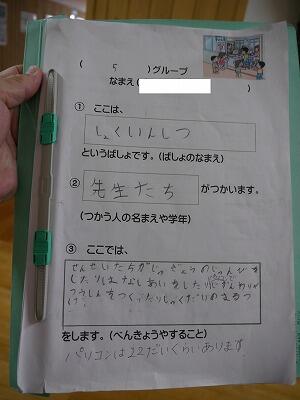 ( 5 )グループ
なまえ( )
① ここは、
しょくいんしつ
というばしょです。(ばしょのなまえ)
② 先生たち がつかいます。
(つかう人の名まえや学年)
③ ここでは、
せんせいたちがじゅぎょうのじゅんびを
したりはなしあいをしたり
つうしんをつくったりしゅくだいのまるつ
け
をします。(べんきょうやすること)
パソコンは22だいくらいあります。